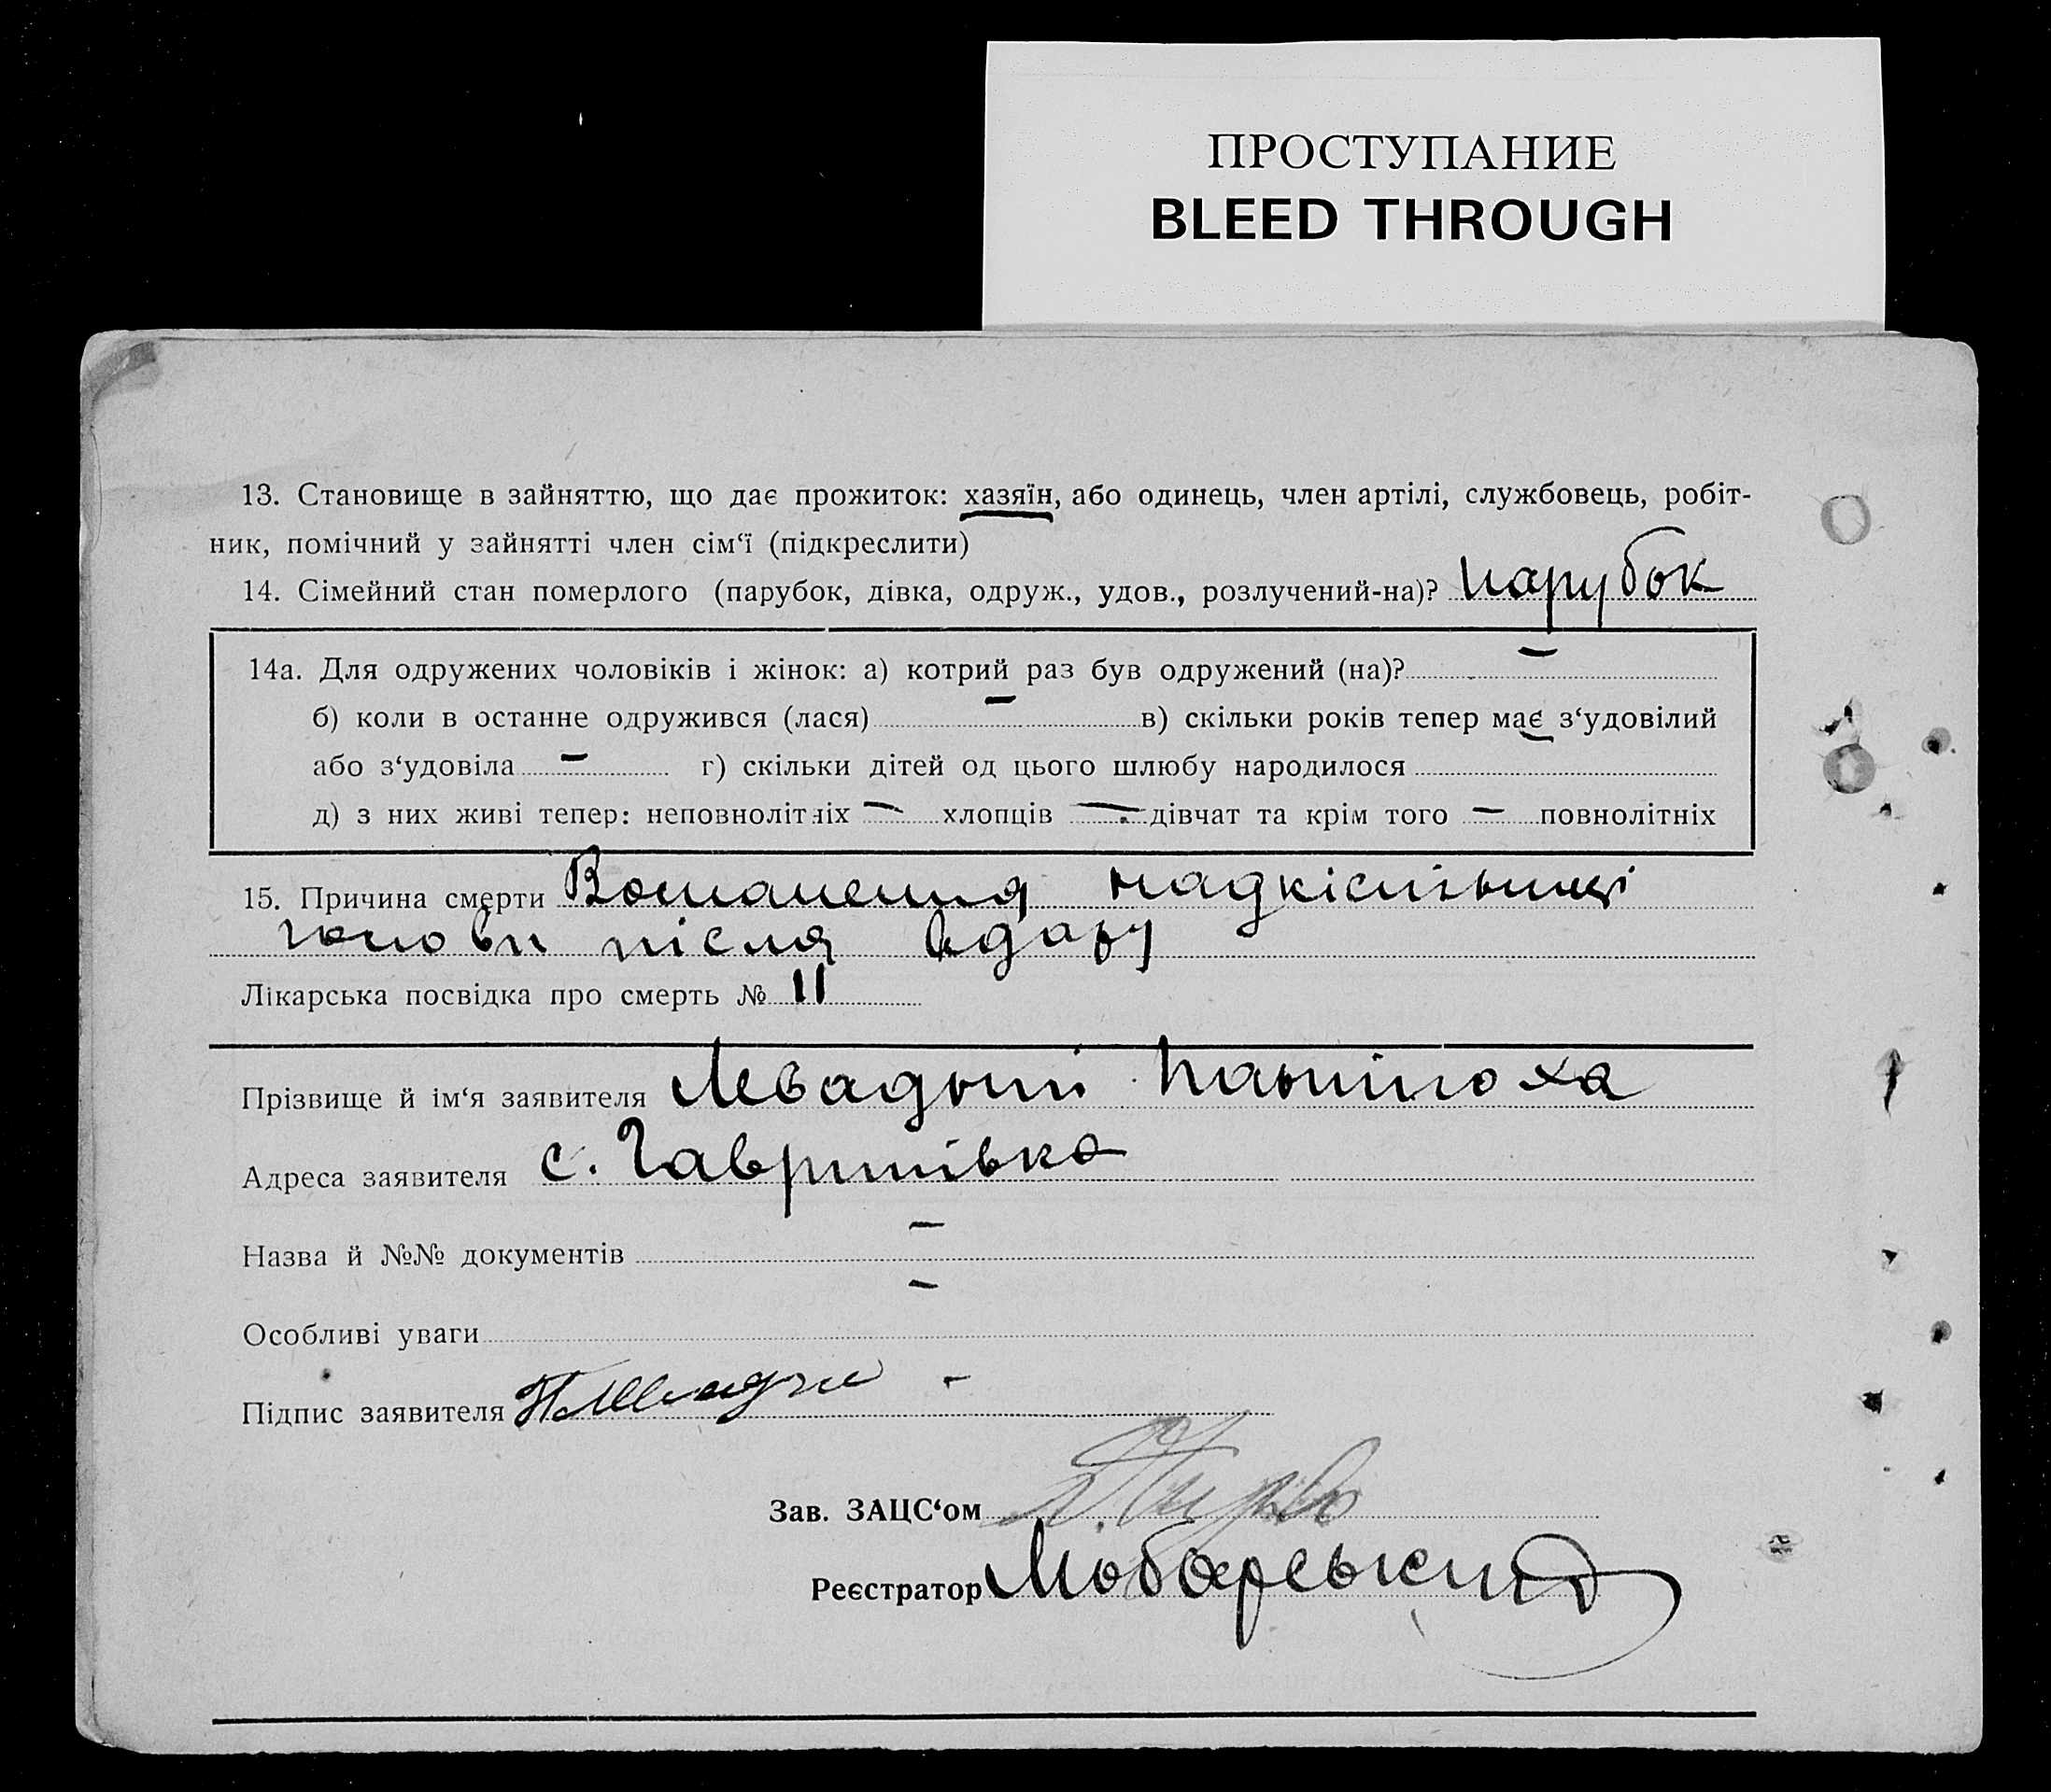 ПРОСТУПАНИЕ
BLEED THROUGH
13. Становище в зайняттю, що дає прожиток: хазяїн, або одинець, член артілі, службовець, робіт-
ник, помічний у зайнятті член сім‘ї (підкреслити)
14. Сімейний стан померлого (парубок, дівка, одруж., удов., розлучений-на)? парубок
14а. Для одружених чоловіків і жінок: а) котрий раз був одружений (на)? –
б) коли в останне одружився (лася) – в) скільки років тепер має з‘удовілий
або з‘удовіла – г) скільки дітей од цього шлюбу народилося –
д) з них живі тепер: неповнолітніх – хлопців – дівчат та крім того – повнолітніх
15. Причина смерти надкістниці
голови після вдару
Лікарська посвідка про смерть № 11
Прізвище й ім‘я заявителя Левадний
Адреса заявителя с. Гавришівка
Назва й №№ документів –
Особливі уваги –
Підпис заявителя
Зав. ЗАЦС‘ом
Реєстратор